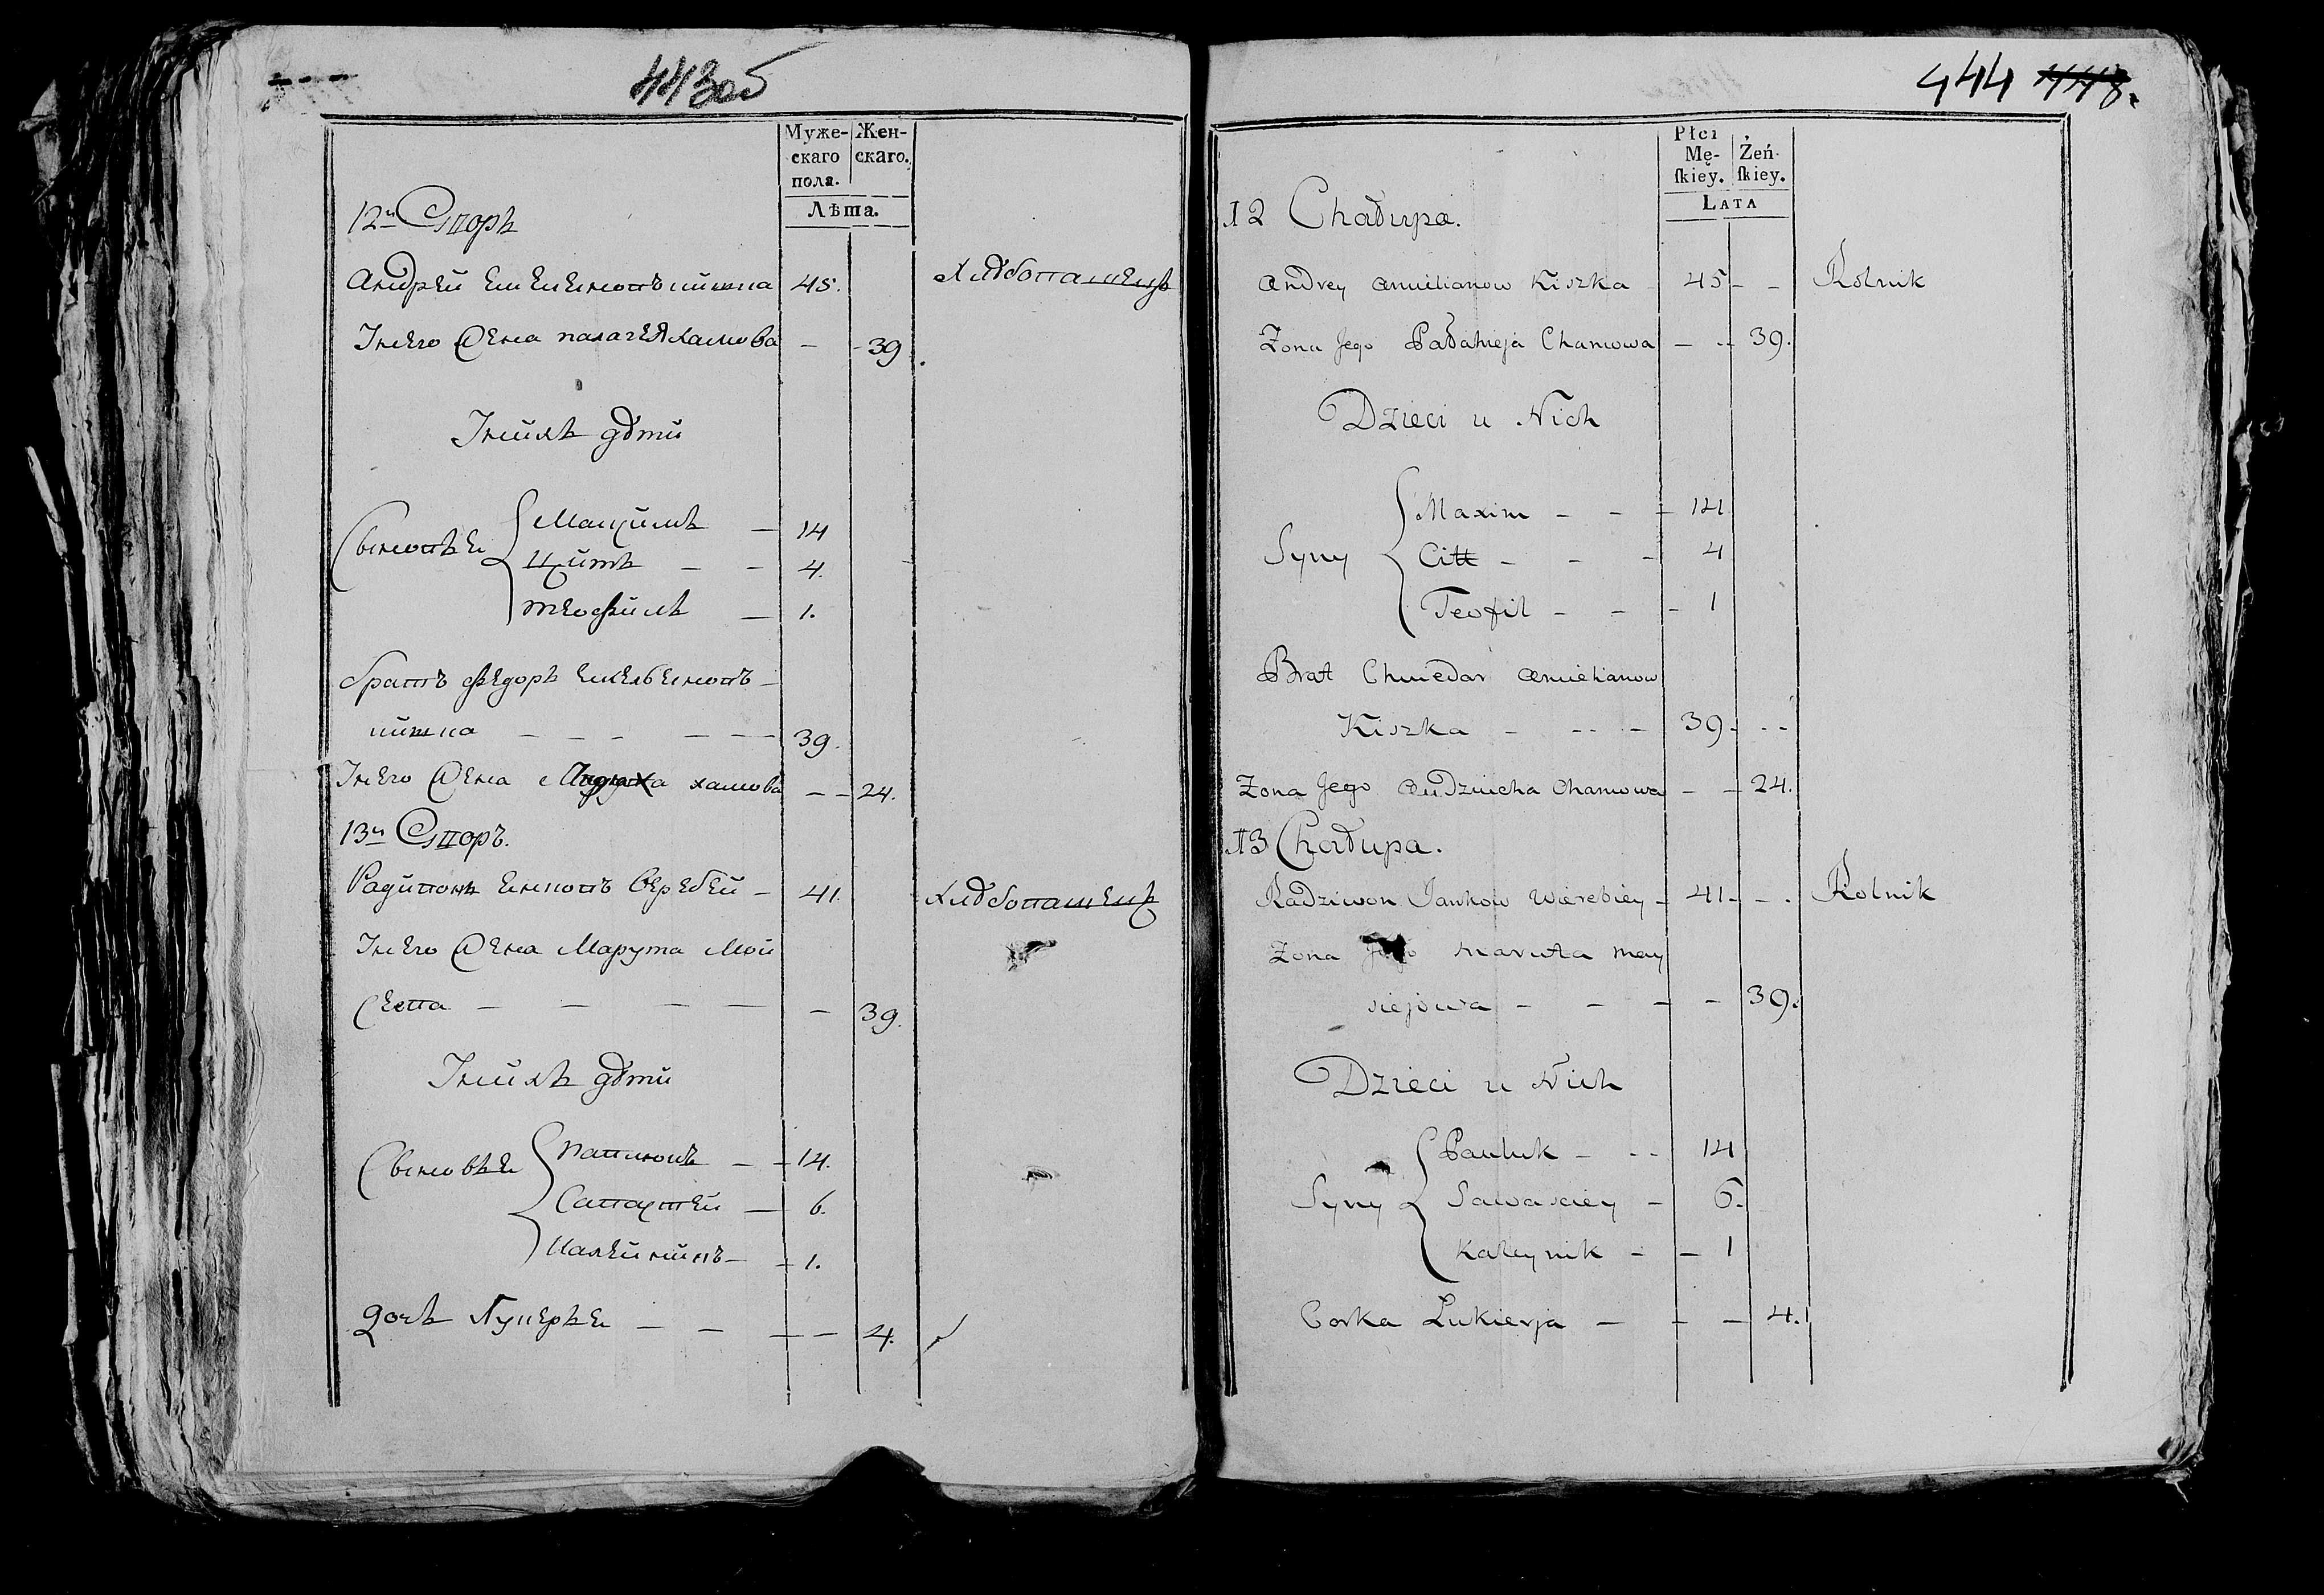 443об
Муже-
скаго
пола.
Жен-
скаго.
Лѣта.
12й Дворъ
Андрей Емельяновъ кишка 45. Хлѣбопашецъ
У него жена палагея хамова — - 39.
У нихъ дѣти
Сыновья
Максимъ — 14
Цитъ — — 4.
Теофилъ — 1.
братъ федоръ Емельяновъ —
кишка — — — — — — 39.
У него жена хамова — — 24.
13й Дворъ.
Радивонъ Янковъ Веребей — 41. Хлѣбопашецъ
У него жена Марута Мой
сеева — — — — — 39.
У нихъ дѣти
Сыновья
Павлюкъ — — 14.
Савастей — 6.
Калейникъ — — 1.
Дочь Лукерья — — — — 4.
444 448.
Płci
Mę-
ſkiey.
Żeń-
ſkiey.
LATA
12 Chałupa.
Andrey Amielianow Kiszka 45 — — Rolnik
Żona Jego Pałahieja Chamowa — — 39.
Dzieci u Nich
Syny
Maxim — — — 14
Citt — — — 4
Teofil — — — 1
Brat Chwiedar Amielianow
Kiszka — — — 39. — —
Żona Jego Audziucha Chamowa — — 24.
13 Chałupa.
Radziwon Jankow Wierebiey — 41 — — Rolnik
Żona Jego Maruta May
siejowa — — — — 39.
Dzieci u Nich
Syny
Pauluk — — — 14
Sawasciey — 6.
Kaleynik — — 1
Corka Lukierja — — — 4.